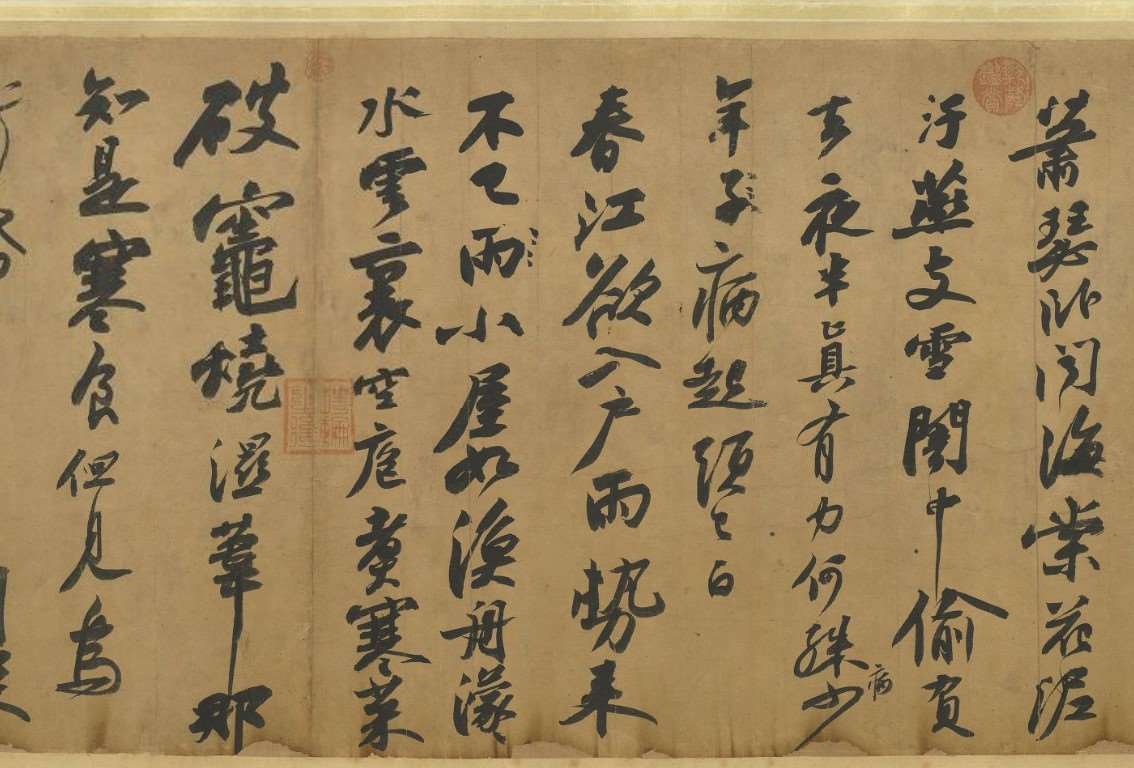 蕭瑟卧聞海棠花泥
汙燕支雪闇中偷負
去夜半真有力何殊少病
年子病起頭已白
春江欲入戶雨勢來
不已雨小屋如漁舟濛〻
水雲裏空庖煑寒菜
破竈燒濕葦那
知是寒食但見烏